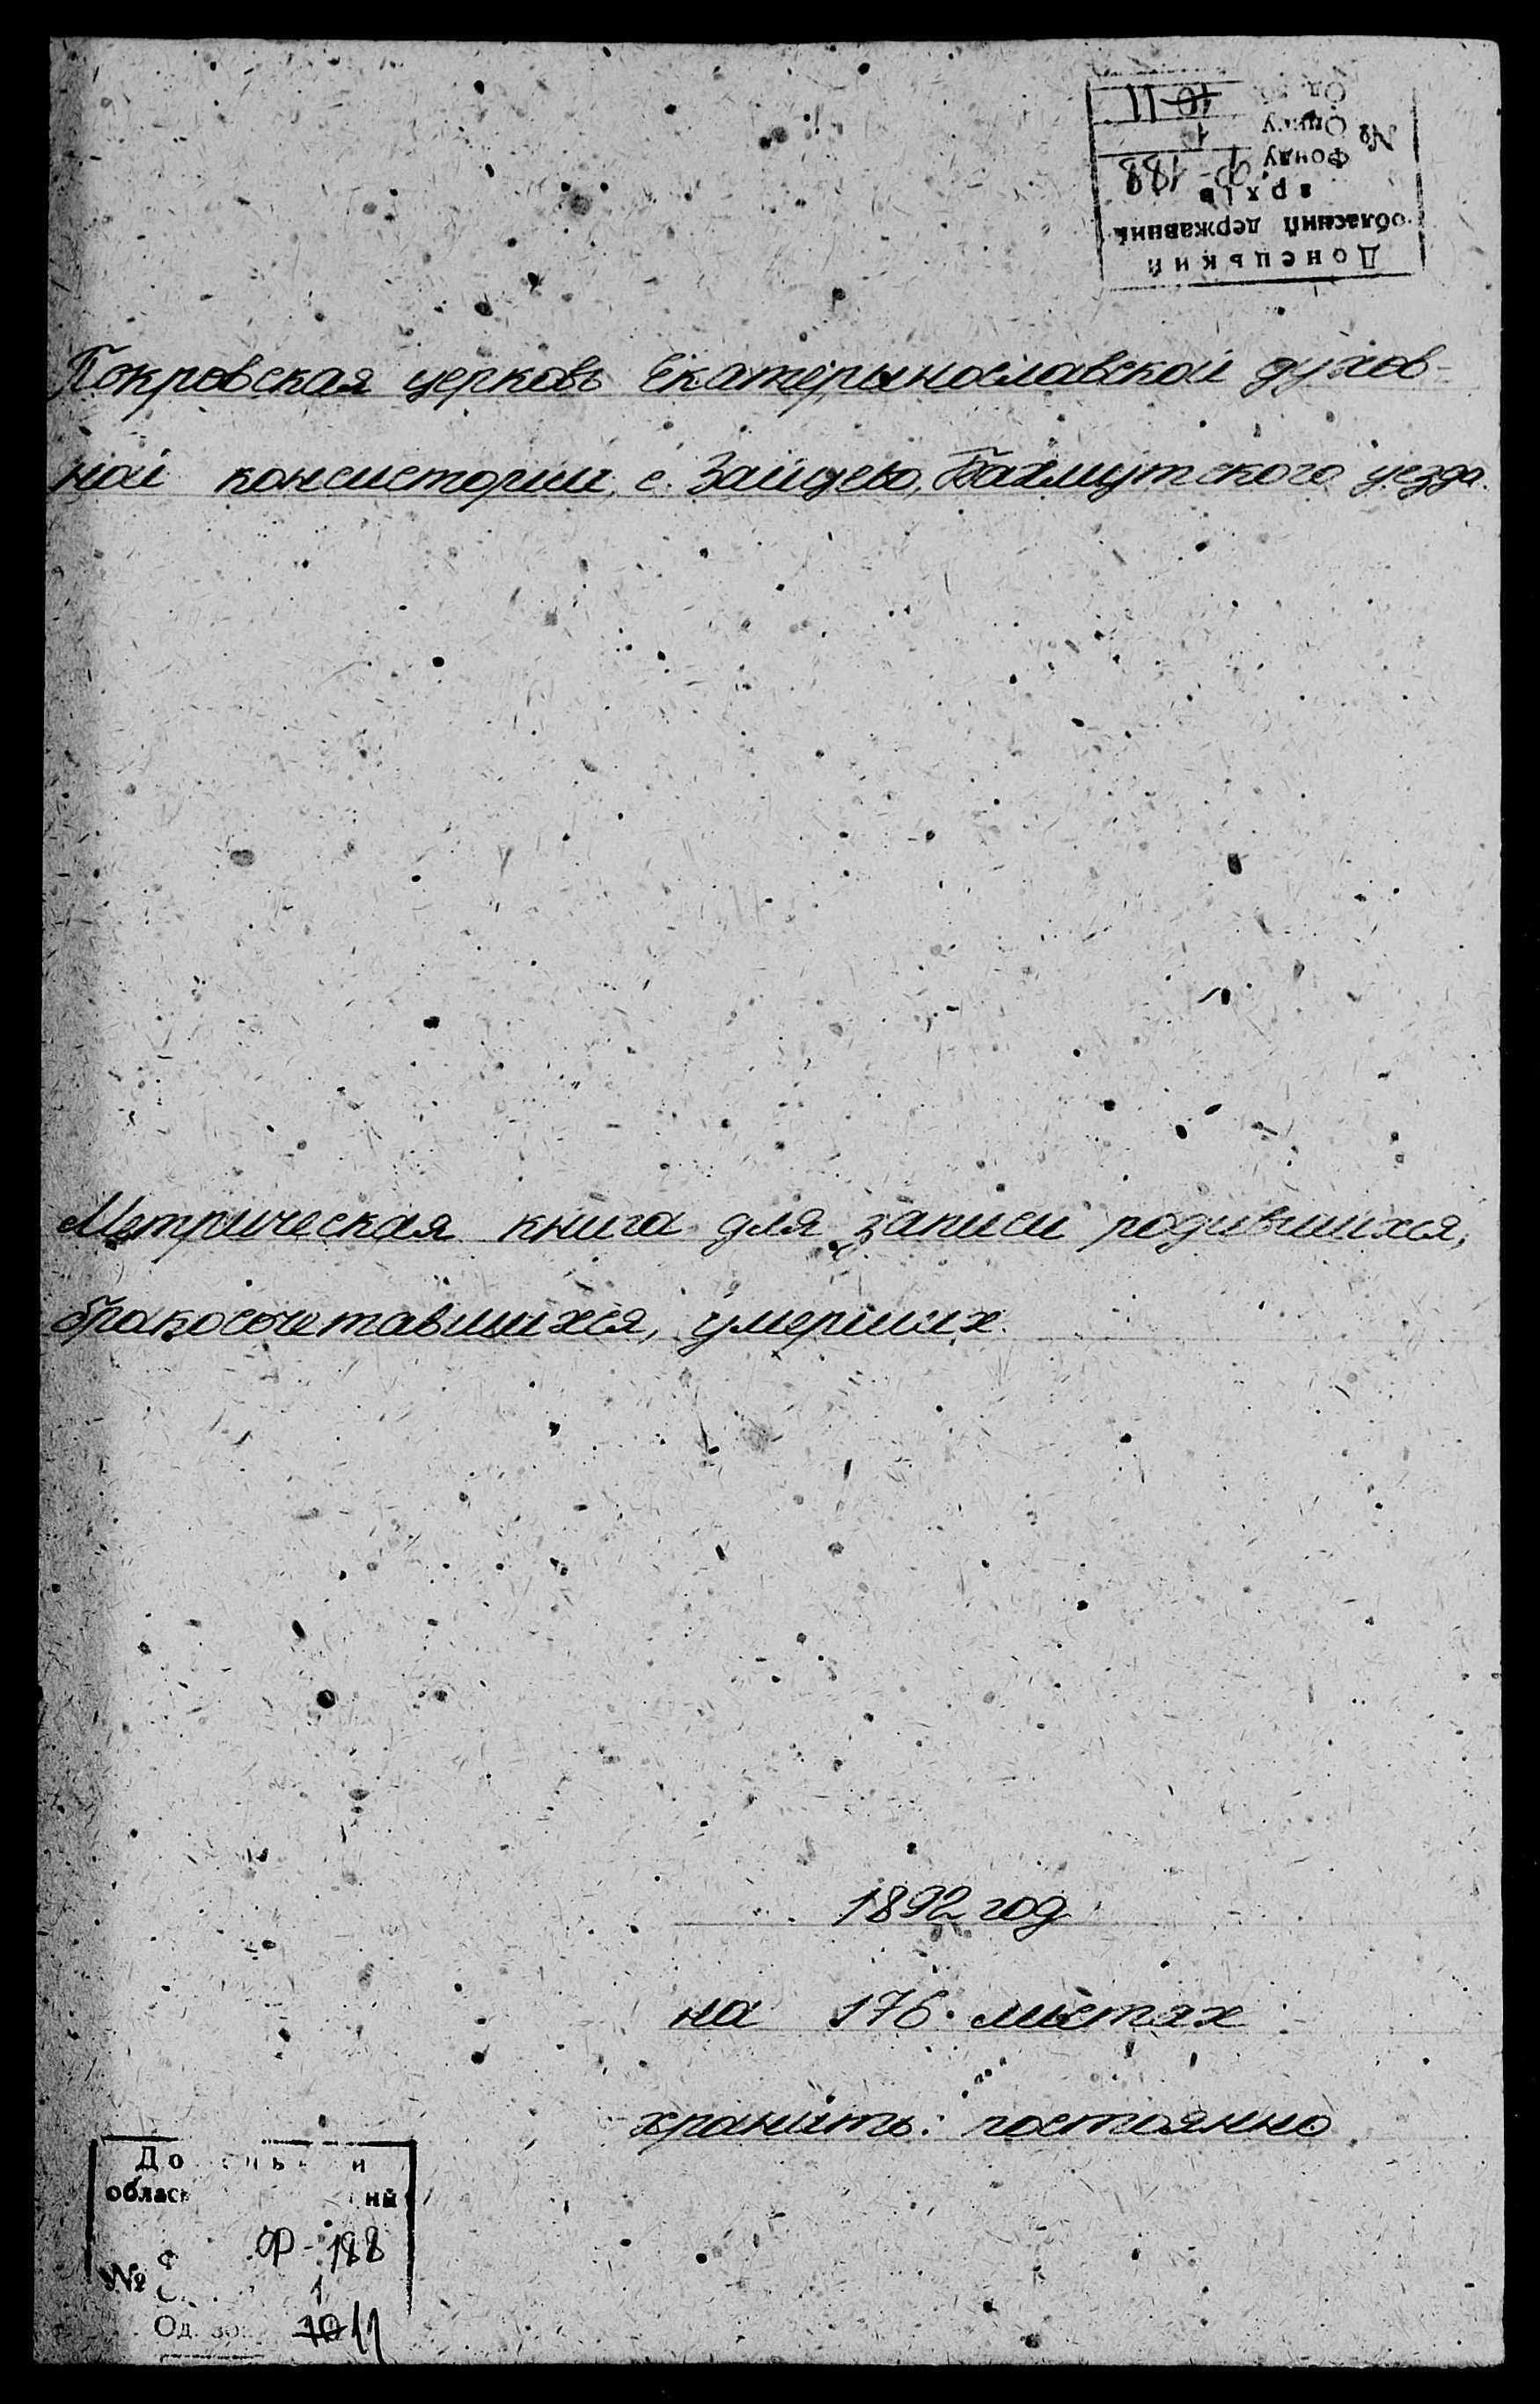 Донецький
обласний державний
архів
№ Фонду Ф-188
Опису 1
Од. 10 11
Покровская церковь Екатерынославской духов-
ной консистории, с. Зайцево, Бахмутского уезда.
Метрическая книга для записи родившихся,
бракосочетавшихся, умерших.
1892 год
на 176 листах
хранить: постоянно
Ф-188
№ 1
Од. 10 11